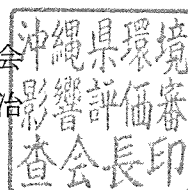 会
治
沖縄県環境
影響評価審
査会長印